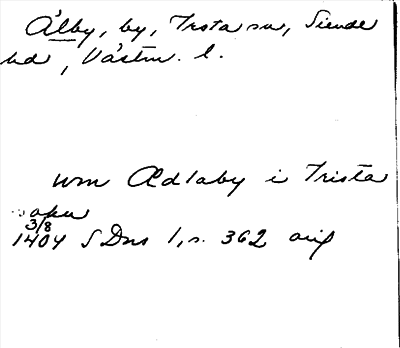 Älby, by, Irsta sn, Siende
hd, Västm. l.
wm Ædlaby i Irista
sokn
3/8
1404 SDns 1, s. 362 orig